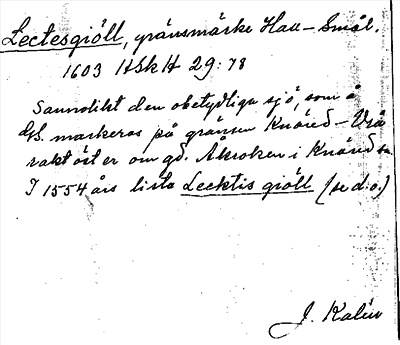 Lectesgiöll, gränsmärke Hall-Smål.
1603 HSkH 29:78
Sannolikt den obetydliga sjö, som å
kb. markeras på gränsen Knäred-Vrå
rakt öster om gd. Abroken i Knäred sn
I 1554 års lista Lecktis giöll (se d.o.)
J. Kalén